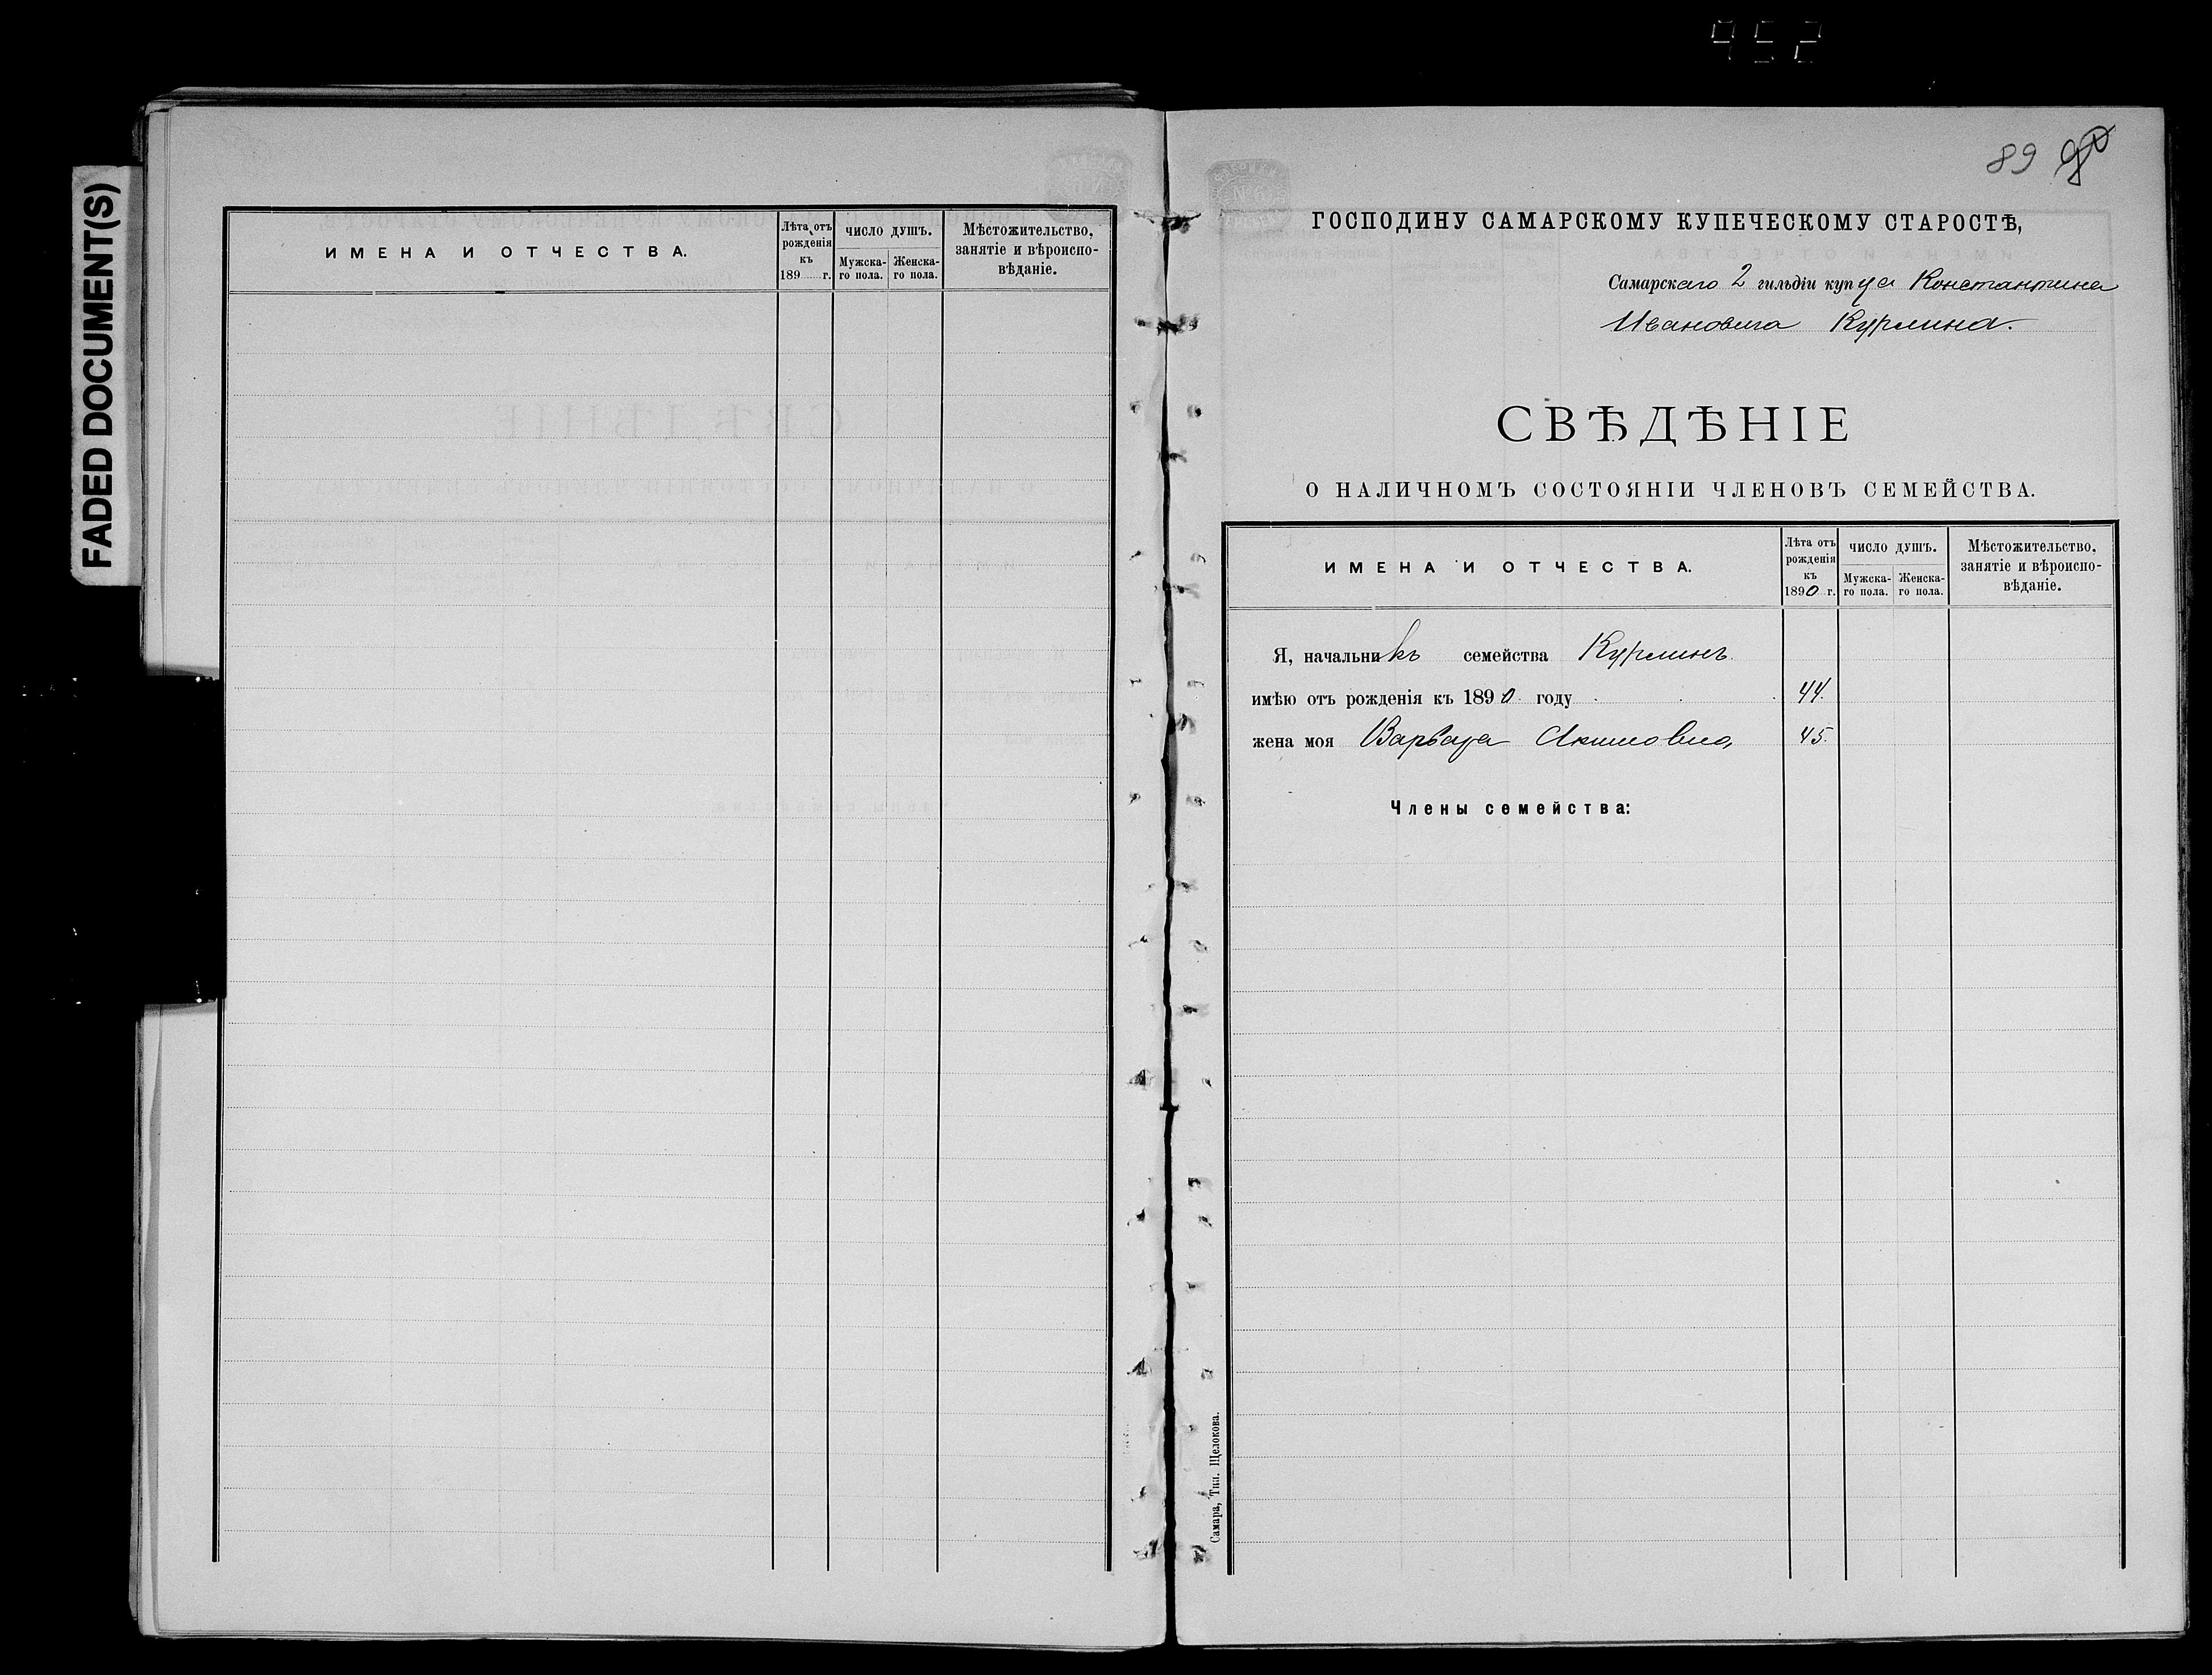 452
FADED DOCUMENT(S)
ИМЕНА И ОТЧЕСТВА.
Лѣта отъ рожденія къ 189 г.
ЧИСЛО ДУШЪ.
Мужска-го пола.
Женска-го пола.
Мѣстожительство, занятіе и вѣроиспо-вѣданіе.
89
ГОСПОДИНУ САМАРСКОМУ КУПЕЧЕСКОМУ СТАРОСТѢ,
Самарскаго 2 гильдіи купца Константина
Ивановича Курлина.
СВѢДѢНІЕ
О НАЛИЧНОМЪ СОСТОЯНІИ ЧЛЕНОВЪ СЕМЕЙСТВА.
ИМЕНА И ОТЧЕСТВА.
Лѣта отъ рожденія къ 1890 г.
ЧИСЛО ДУШЪ.
Мужска-го пола.
Женска-го пола.
Мѣстожительство, занятіе и вѣроиспо-вѣданіе.
Я, начальникъ семейства Курлинъ
имѣю отъ рожденія къ 1890 году 44.
жена моя Варвара Акимовна 45.
Члены семейства:
Самара, Тип. Щелокова.